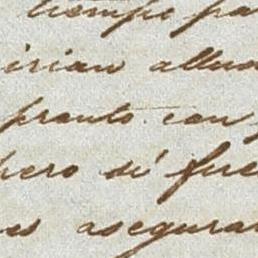 tiempo pa
irian allua
pronto con
pero si fue
es asegurar